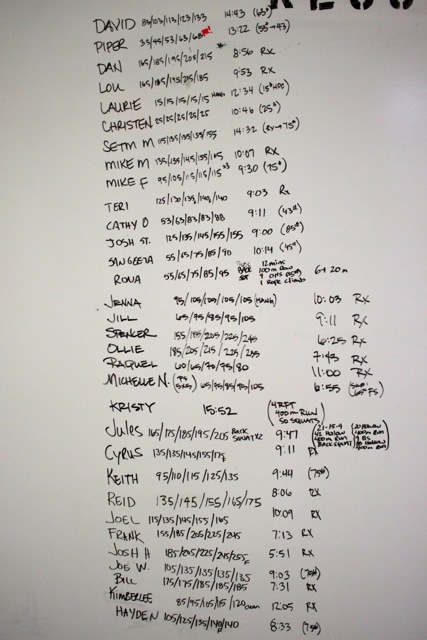 DAVID 83/103/113/123/133 14:43 (63#)
PIPER 33/45/53/63/68 13:22 (53#→43)
DAN 165/185/195/205/215 8:56 RX
LOU 165/185/195/215/185 9:53 RX
LAURIE 15/15/15/15/15 HANG 12:34 (15#HPC)
CHRISTEN 25/25/25/25/25 10:46 (25#)
SETH M 115/135/135/135/155 14:32 (RX→75#)
MIKE M 135/135/145/155/165 10:07 RX
MIKE F 95/105/115/115/115 x3 9:30 (75#)
TERI 125/130/135/140/140 9:03 RX
CATHY O 53/63/83/83/88 9:11 (43#)
JOSH ST. 125/135/145/155/155 9:00 (85#)
SANGEETA 55/65/75/85/90 10:14 (45#)
ROUA 55/65/75/85/95 BACK SQT 12 mins 6+ 20m
100m Row
1 Rope Climb
JENNA 95/105/105/105/105 (HANG) 10:03 RX
JILL 65/75/85/95/105 9:11 RX
SPENCER 155/185/205/225/245 6:25 RX
OLLIE 185/205/215/225/235 7:43 RX
RAQUEL 60/65/70/75/80 11:00 RX
MICHELLE N. 65/75/85/95/105 6:55 65# FS
KRISTY 15:52 (4 RFT
400m RUN
50 SQUATS
JULES 165/175/185/195/205 BACK SQUAT X2 9:47 21-15-9
CYRUS 135/135/145/155/175 9:11 RX
KEITH 95/110/115/125/135 9:44 (75#)
REID 135/145/155/165/175 8:06 RX
JOEL 115/135/145/155/165 10:09 RX
FRANK 155/185/205/225/245 7:13 RX
JOSH H 185/205/225/245/255F 5:51 RX
JOE W. 105/135/135/135/135 9:03 (75#)
BILL 175/175/185/185/185 7:31 RX
KIMBERLEE 85/95/105/115/120 12:05 RX
HAYDEN 105/125/135/140/140 8:33 (75#)